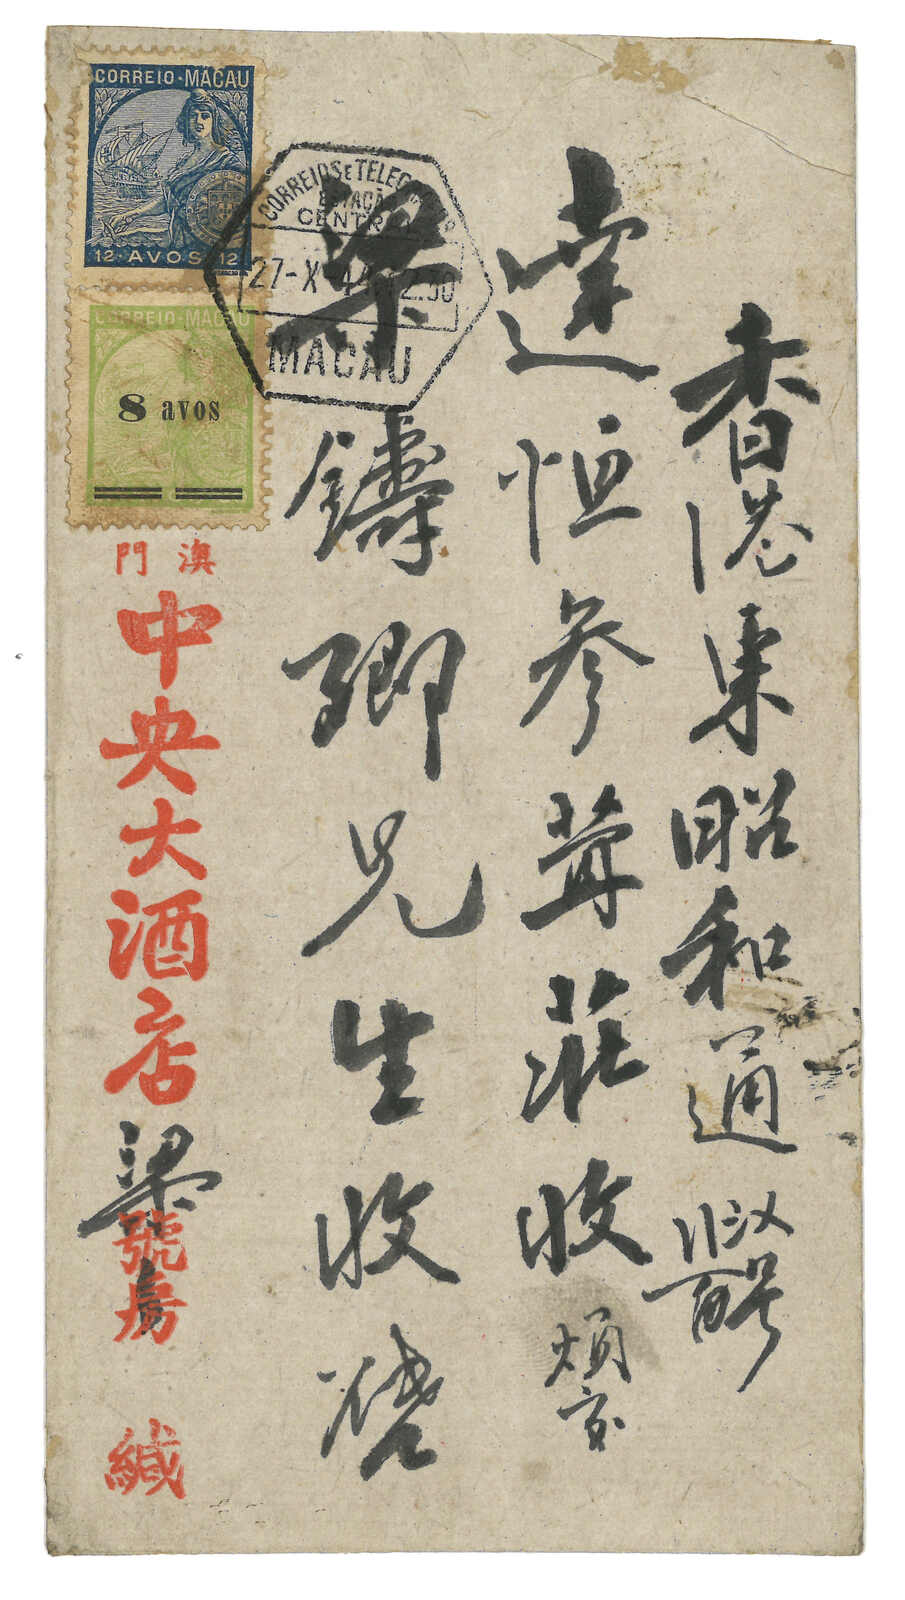 香港東昭和通
達恒參茸莊收煩交
梁鑄卿兄生收
CORREIO·MACAU
12·AVOS·12
CORREIO·MACAU
8 avos
CORREIOS E TELEG
ESTAÇÃ
CENTRAL
27-X-44 12.30
MACAU
澳門
中央大酒店
梁
號房
緘